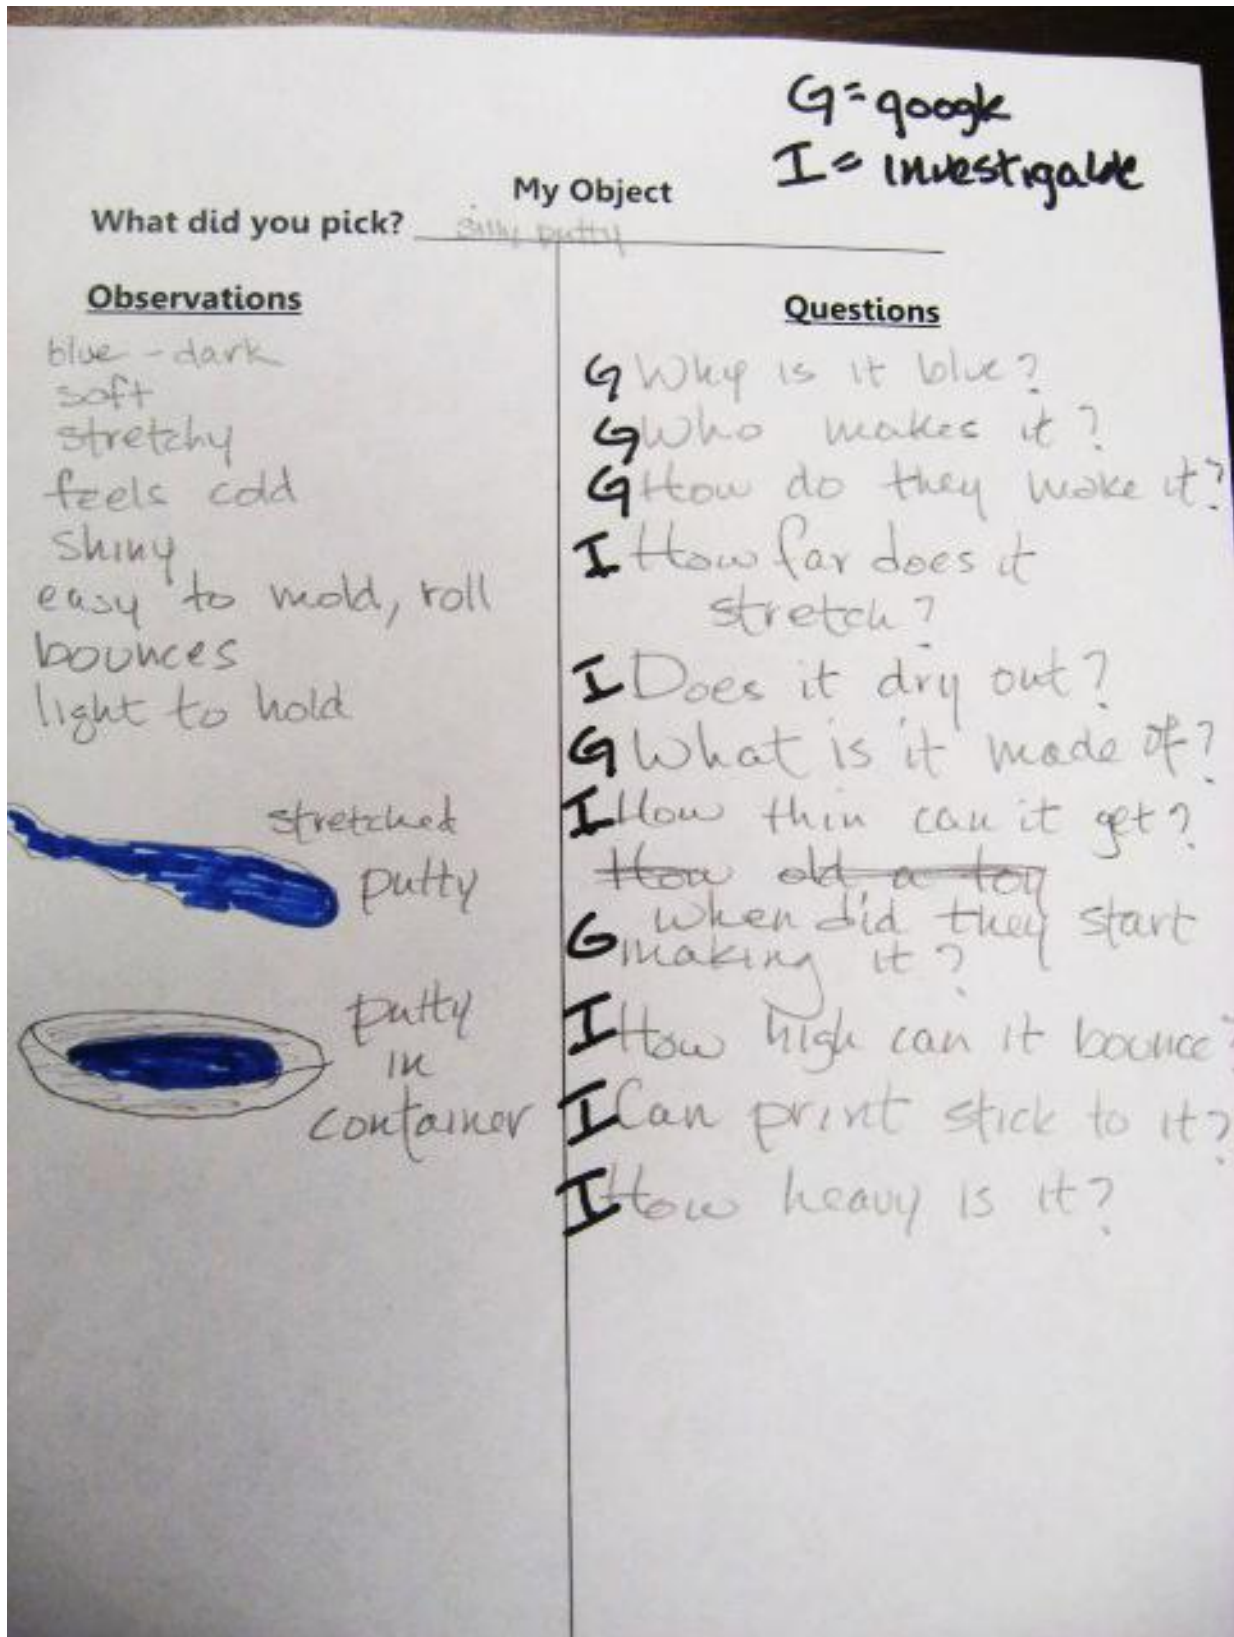 G = google
I = investigable
My Object
What did you pick? silly putty
Observations
blue - dark
soft
stretchy
feels cold
shiny
easy to mold, roll
bounces
light to hold
stretched
putty
putty
in
container
Questions
G Why is it blue?
G Who makes it?
G How do they make it?
I How far does it
stretch?
I Does it dry out?
G What is it made of?
I How thin can it get?
How old a toy
G when did they start
making it?
I How high can it bounce?
I Can print stick to it?
I How heavy is it?